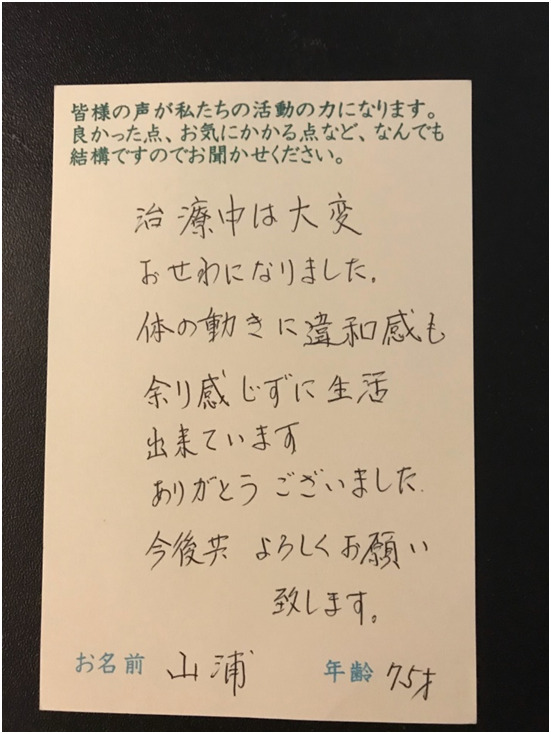 皆様の声が私たちの活動の力になります。
良かった点、お気にかかる点など、なんでも
結構ですのでお聞かせください。
治療中は大変
おせわになりました。
体の動きに違和感も
余り感じずに生活
出来ています
ありがとうございました.
今後共 よろしくお願い
致します。
お名前 山浦 年齢 75才